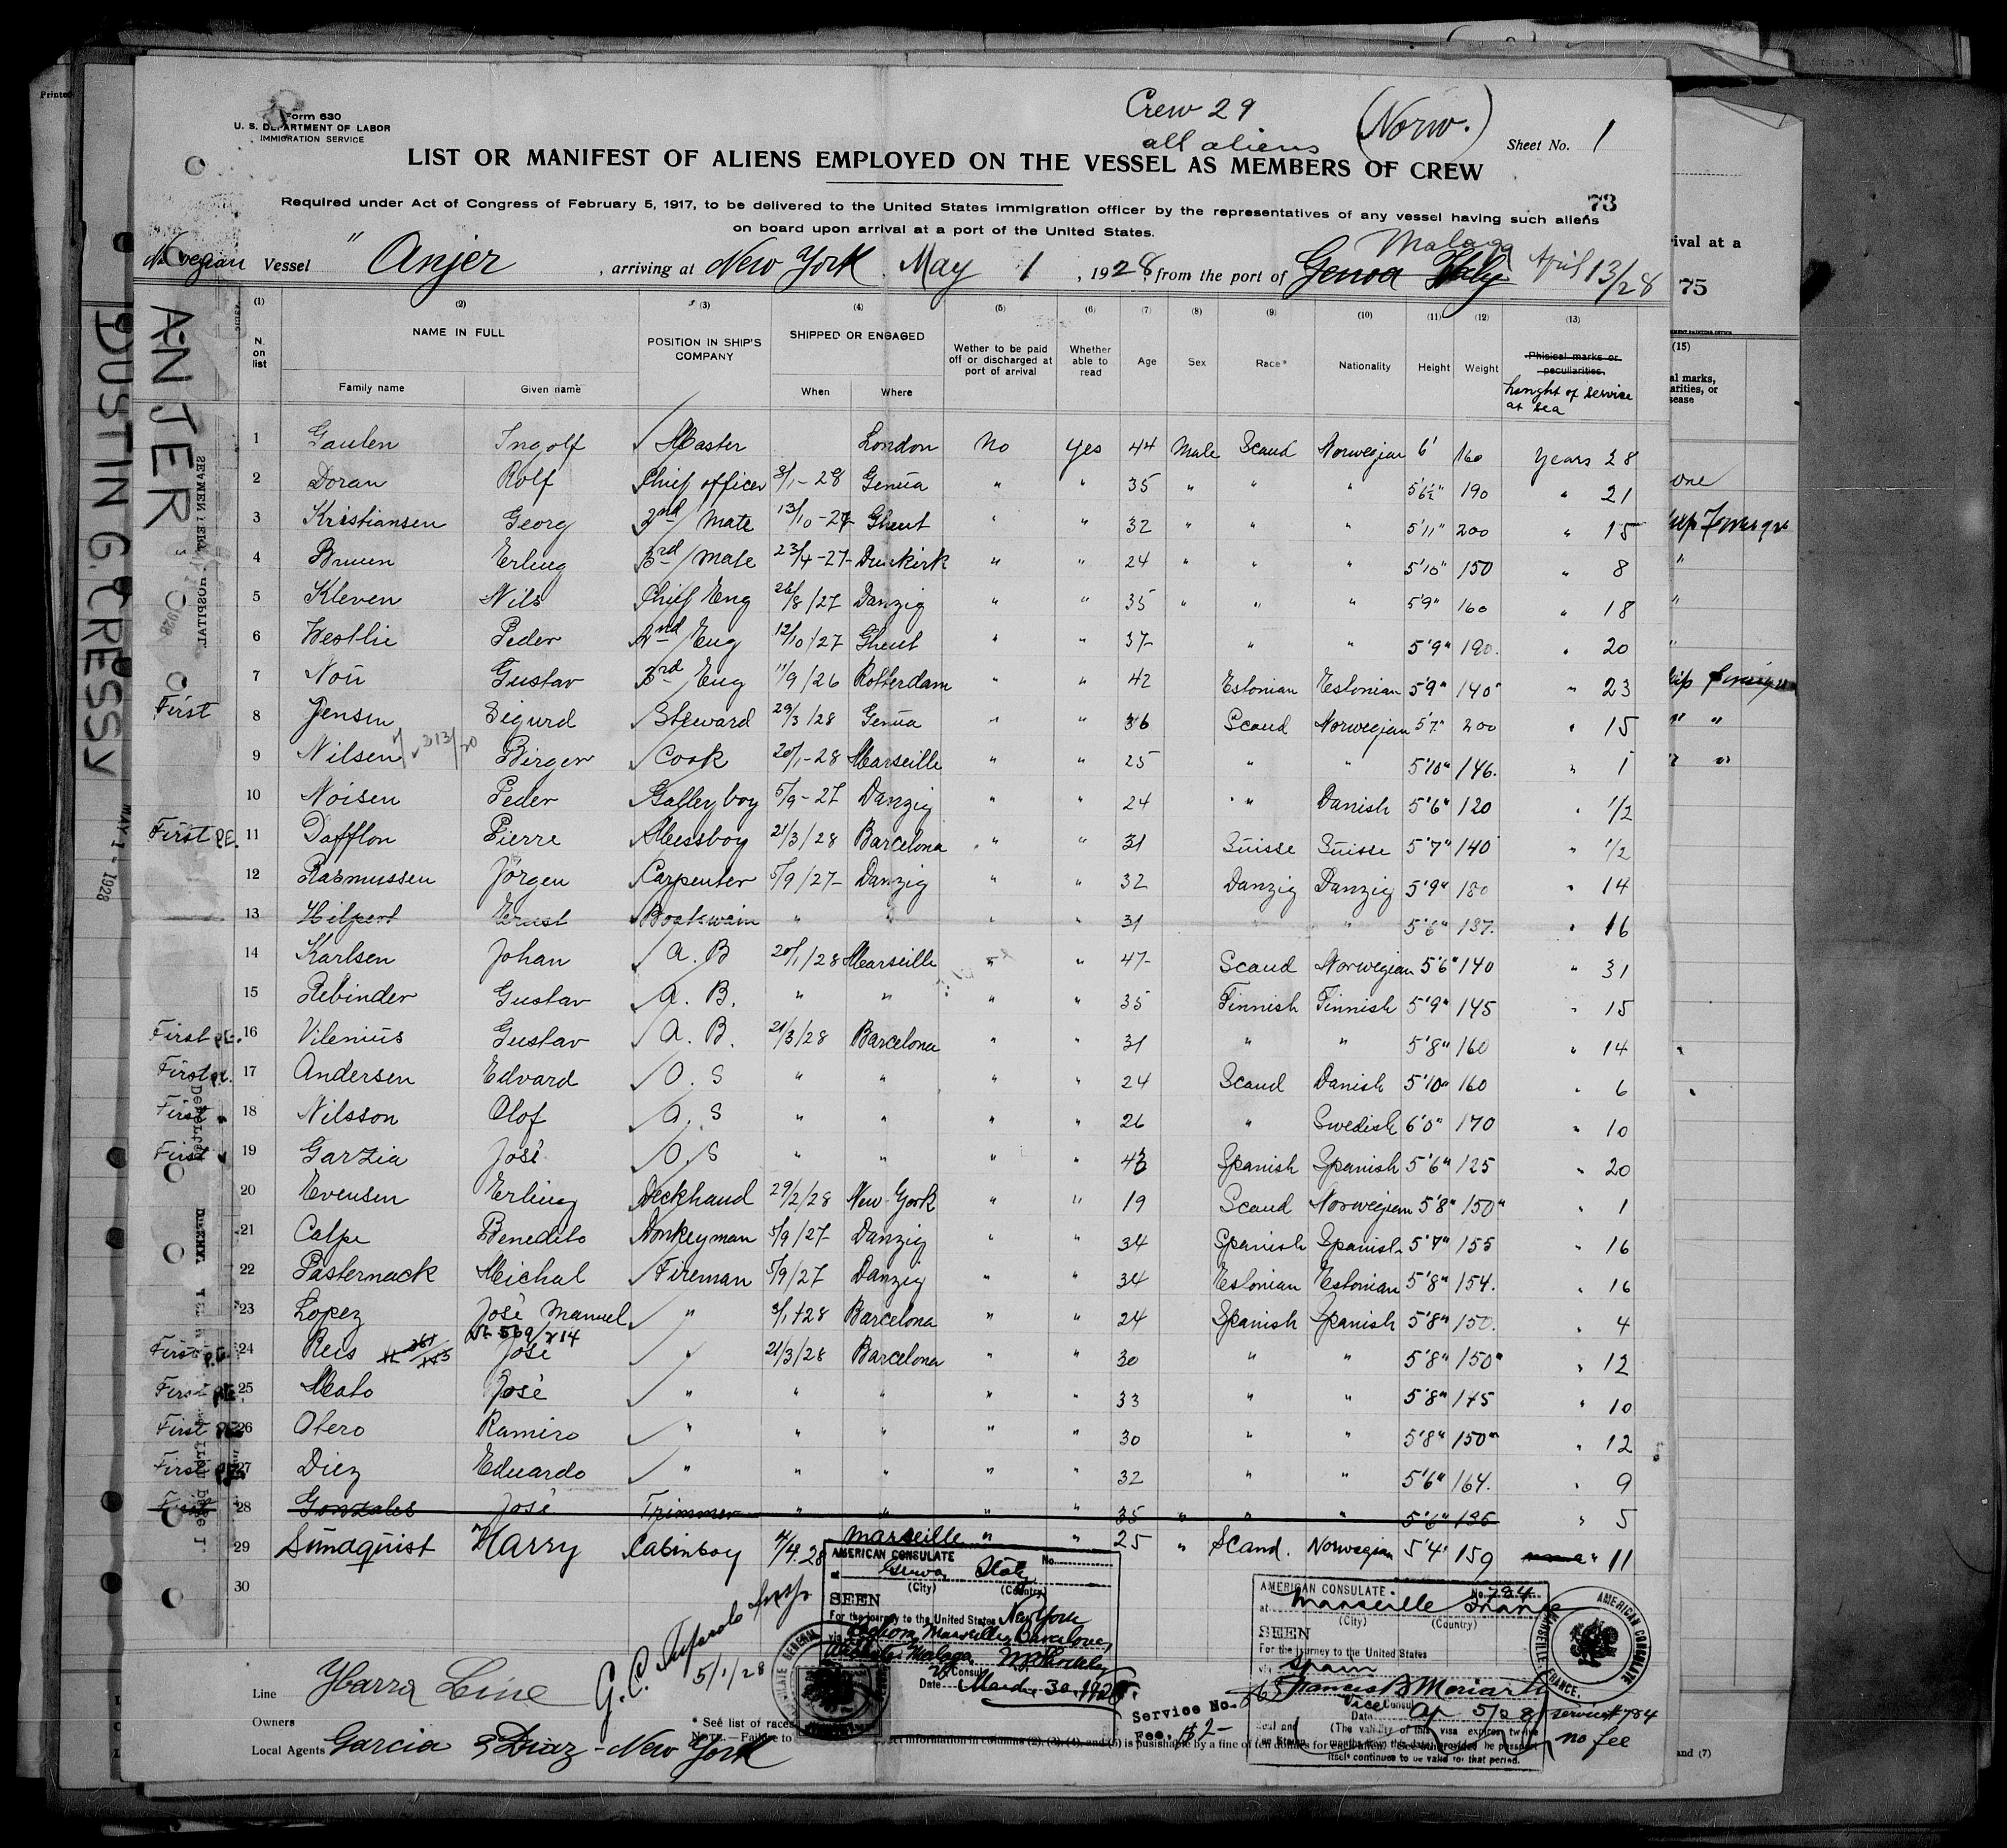 Printed
Form 630
U. S. DEPARTMENT OF LABOR
IMMIGRATION SERVICE
Crew 29
all aliens
(Norw.)
Sheet No. 1
LIST OR MANIFEST OF ALIENS EMPLOYED ON THE VESSEL AS MEMBERS OF CREW
73
Required under Act of Congress of February 5, 1917, to be delivered to the United States immigration officer by the representatives of any vessel having such aliens
on board upon arrival at a port of the United States.
Malaga
Norwegian Vessel " Anjer , arriving at New York May 1 , 1928 from the port of Genoa Italy April 13/28
rival at a
75
ANJER
DUSTIN G. CRESSY
MAY 1 - 1928
(1) (2) (3) (4) (5) (6) (7) (8) (9) (10) (11) (12) (13) (15)
N. on list
NAME IN FULL
Family name Given name
POSITION IN SHIP'S COMPANY
SHIPPED OR ENGAGED
When Where
Wether to be paid off or discharged at port of arrival
Whether able to read
Age Sex Race* Nationality Height Weight
Phisical marks or peculiarities.
Lenght of service at sea
1 Gaulen Ingolf Master London No Yes 44 Male Scand Norwegian 6' 160 Years 28
2 Doran Rolf Chief officer 3/1-28 Genua " " 35 " " " 5'6½" 190 " 21
3 Kristiansen Georg 2nd Mate 13/10-27 Ghent " " 32 " " " 5'11" 200 " 15
4 Bruun Erling 3rd Mate 23/4-27 Dunkirk " " 24 " " " 5'10" 150 " 8
5 Kleven Nils Chief Eng 26/8/27 Danzig " " 35 " " " 5'9" 160 " 18
6 Westlie Peder 2nd Eng 12/10/27 Ghent " " 37 " " 5'9" 190. " 20
7 Nou Gustav 3rd Eng 11/9/26 Rotterdam " " 42 Estonian Estonian 5'9" 140 " 23
First 8 Jensen Sigurd Steward 29/3/28 Genua " " 36 Scand Norwegian 5'7" 200 " 15
9 Nilsen Birger Cook 20/1-28 Marseille " " 25 " " 5'10" 146. " 1
10 Noisen Peder Galleyboy 5/9-27 Danzig " " 24 " Danish 5'6" 120 " 1/2
First 11 Dafflon Pierre Messboy 21/3/28 Barcelona " " 31 Suisse Suisse 5'7" 140 " 1/2
12 Rasmussen Jörgen Carpenter 5/9/27 Danzig " " 32 Danzig Danzig 5'9" 180 " 14
13 Hilpert Ernst Boatswain " " " " 31 " " 5'6" 137. " 16
14 Karlsen Johan A. B 20/1/28 Marseille " " 47 Scand Norwegian 5'6" 140 " 31
15 Rebinder Gustav A. B. " " " " 35 Finnish Finnish 5'9" 145 " 15
First 16 Vilenius Gustav A. B. 21/3/28 Barcelona " " 31 " " 5'8" 160 " 14
First 17 Andersen Edvard O. S " " " " 24 Scand Danish 5'10" 160 " 6
First 18 Nilsson Olof O. S " " " " 26 " Swedish 6'0" 170 " 10
First 19 Garzia José O. S " " " " 43 Spanish Spanish 5'6" 125 " 20
20 Evensen Erling Deckhand 29/2/28 New York " " 19 Scand Norwegian 5'8" 150" " 1
21 Calpe Benedito Donkeyman 5/9/27 Danzig " " 34 Spanish Spanish 5'7" 155 " 16
22 Pasternack Michal Fireman 5/9/27 Danzig " " 34 Estonian Estonian 5'8" 154. " 16
23 Lopez José Manuel " 3/1-28 Barcelona " " 24 Spanish Spanish 5'8" 150. " 4
First 24 Reis José " 21/3/28 Barcelona " " 30 " " 5'8" 150" " 12
First 25 Mato José " " " " " 33 " " 5'8" 145 " 10
First 26 Otero Ramiro " " " " " 30 " " 5'8" 150" " 12
First 27 Diez Eduardo " " " " " 32 " " 5'6" 164. " 9
First 28 Gonzales José Trimmer " " " " 35 " " " 5'6" 136 " 5
29 Sundquist Harry Cabinboy 4/4.28 Marseille " " 25 " Scand. Norwegian 5'4" 159 " 11
30
AMERICAN CONSULATE No.
at Genoa Italy
(City) (Country)
SEEN
For the journey to the United States New York
Date March 30, 1928.
Service No.
Fee. $2-
AMERICAN CONSULATE. No. 784
at Marseille France
(City) (Country)
SEEN
For the journey to the United States
via Spain
Francis B Moriarty
Vice Consul
Date Ap 5/28
(The validity of this visa expires twelve
itself continues to be valid for that period.
AMERICAN CONSULATE
MARSEILLE FRANCE.
service # 784
no fee
5/1/28
Line Ybarra Line
Owners
Local Agents Garcia & Diaz - New York
* See list of races
NOTE.—Failure to
information in columns (2), (3), (4), and (5) is punishable by a fine of ten dollars for each alien.
and (7)